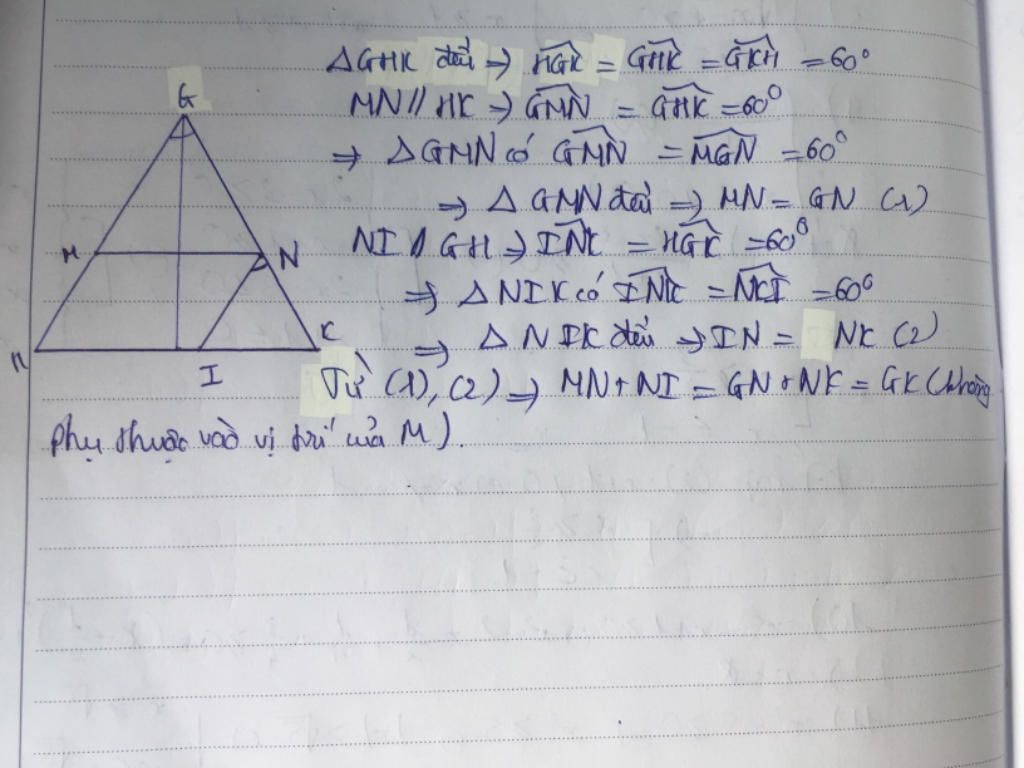 G
M
N
H
I
K
△GHK đều → HGK = GHK = GKH = 60°
MN // HK → GMN = GHK = 60°
⇒ △GMN có GMN = MGN = 60°
⇒ △ GMN đều → MN = GN (1)
NI // GH → INK = HGK = 60°
⇒ △NIK có INK = NKI = 60°
⇒ △ NIK đều → IN = NK (2)
Từ (1), (2) ⇒ MN + NI = GN + NK = GK (không
phụ thuộc vào vị trí của M).